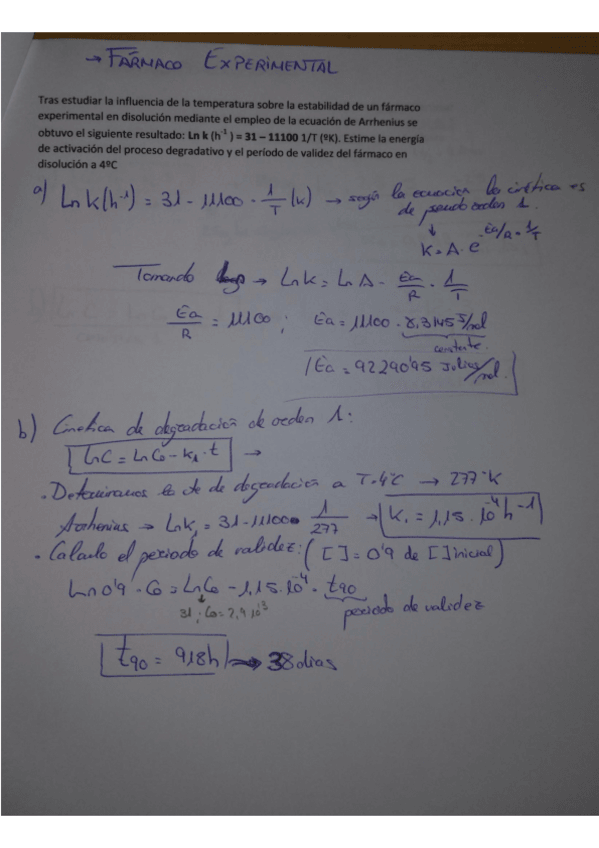 → FÁRMACO EXPERIMENTAL
Tras estudiar la influencia de la temperatura sobre la estabilidad de un fármaco
experimental en disolución mediante el empleo de la ecuación de Arrhenius se
obtuvo el siguiente resultado: Ln k (h⁻¹) = 31 – 11100 1/T (ºK). Estime la energía
de activación del proceso degradativo y el período de validez del fármaco en
disolución a 4ºC
a) Ln K(h⁻¹) = 31 - 11100 · 1/T (K) → según la ecuacion la cinética es
de pseudo orden 1.
↓
K = A · e^-Ea/R · 1/T
Tomando → LnK = LnA - Ea/R · 1/T
Ea/R = 11100 ; Ea = 11100 · 8,3145 J/mol
constante.
Ea = 92290'95 Julios/mol.
b) Cinética de degradación de orden 1:
LnC = LnC₀ - K₁ · t →
· Determinamos la cte de degradación a T=4ºC → 277ºK
Arrhenius → LnK₁ = 31 - 11100 · 1/277 → K₁ = 1,15 · 10⁻⁴ h⁻¹
· Calculo el periodo de validez: ([ ] = 0'9 de [ ] inicial)
Ln 0'9 · C₀ = LnC₀ - 1,15 · 10⁻⁴ · t90
31 ; C₀ = 2,9 10¹³
periodo de validez
t90 = 918h → 38 dias